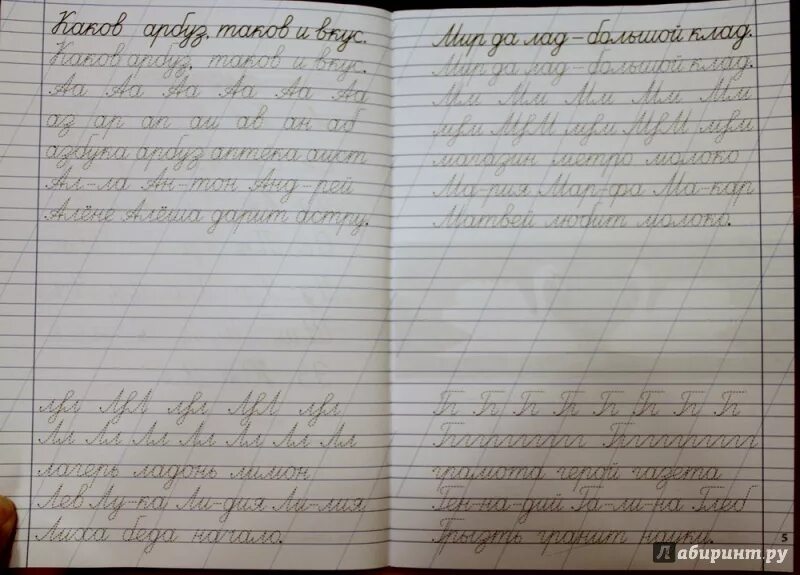 Каков арбуз, таков и вкус.
Каков арбуз, таков и вкус.
Аа Аа Аа Аа Аа Аа
аз ар ап аи ав ан аб
азбука арбуз аптека аист
Ал-ла Ан-тон Анд-рей
Алёне Алёша дарит астру.
Лл Лл Лл Лл Лл Лл Лл Лл
лагерь ладонь лимон
Лев Лу-ка Ли-дия Ли-лия
Лиха беда начало.
Мир да лад – большой клад.
Мир да лад – большой клад.
Мм Мм Мм Мм Мм
магазин метро молоко
Ма-рия Мар-фа Ма-кар
Матвей любит молоко.
Г Г Г Г Г Г Г Г
грамота герой газета
Ген-на-дий Га-ли-на Глеб
Грызть гранит науки.
5
Лабиринт.ру